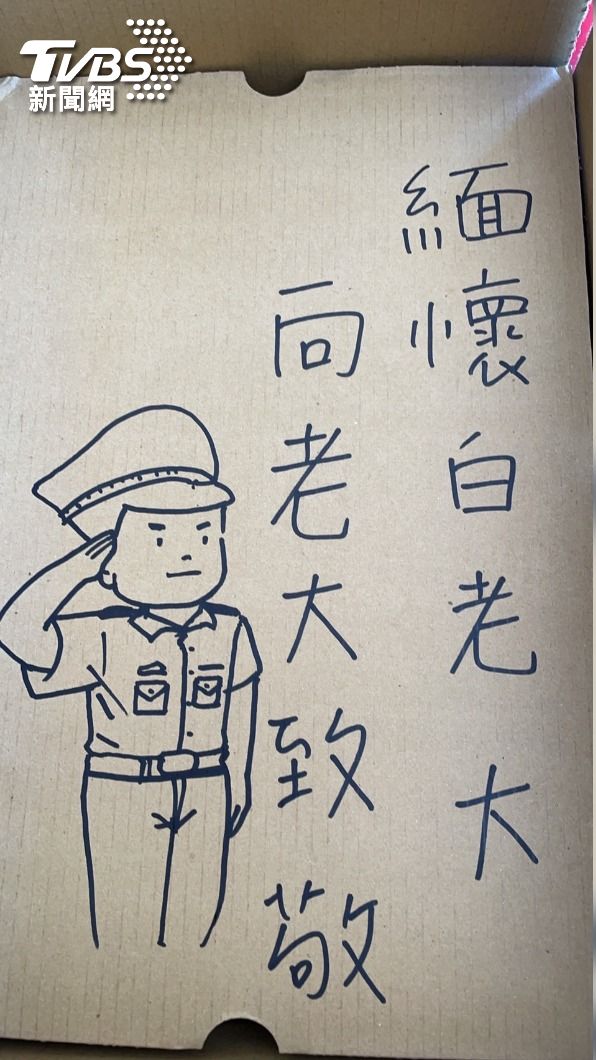 TVBS
新聞網
緬懷白老大
向老大致敬